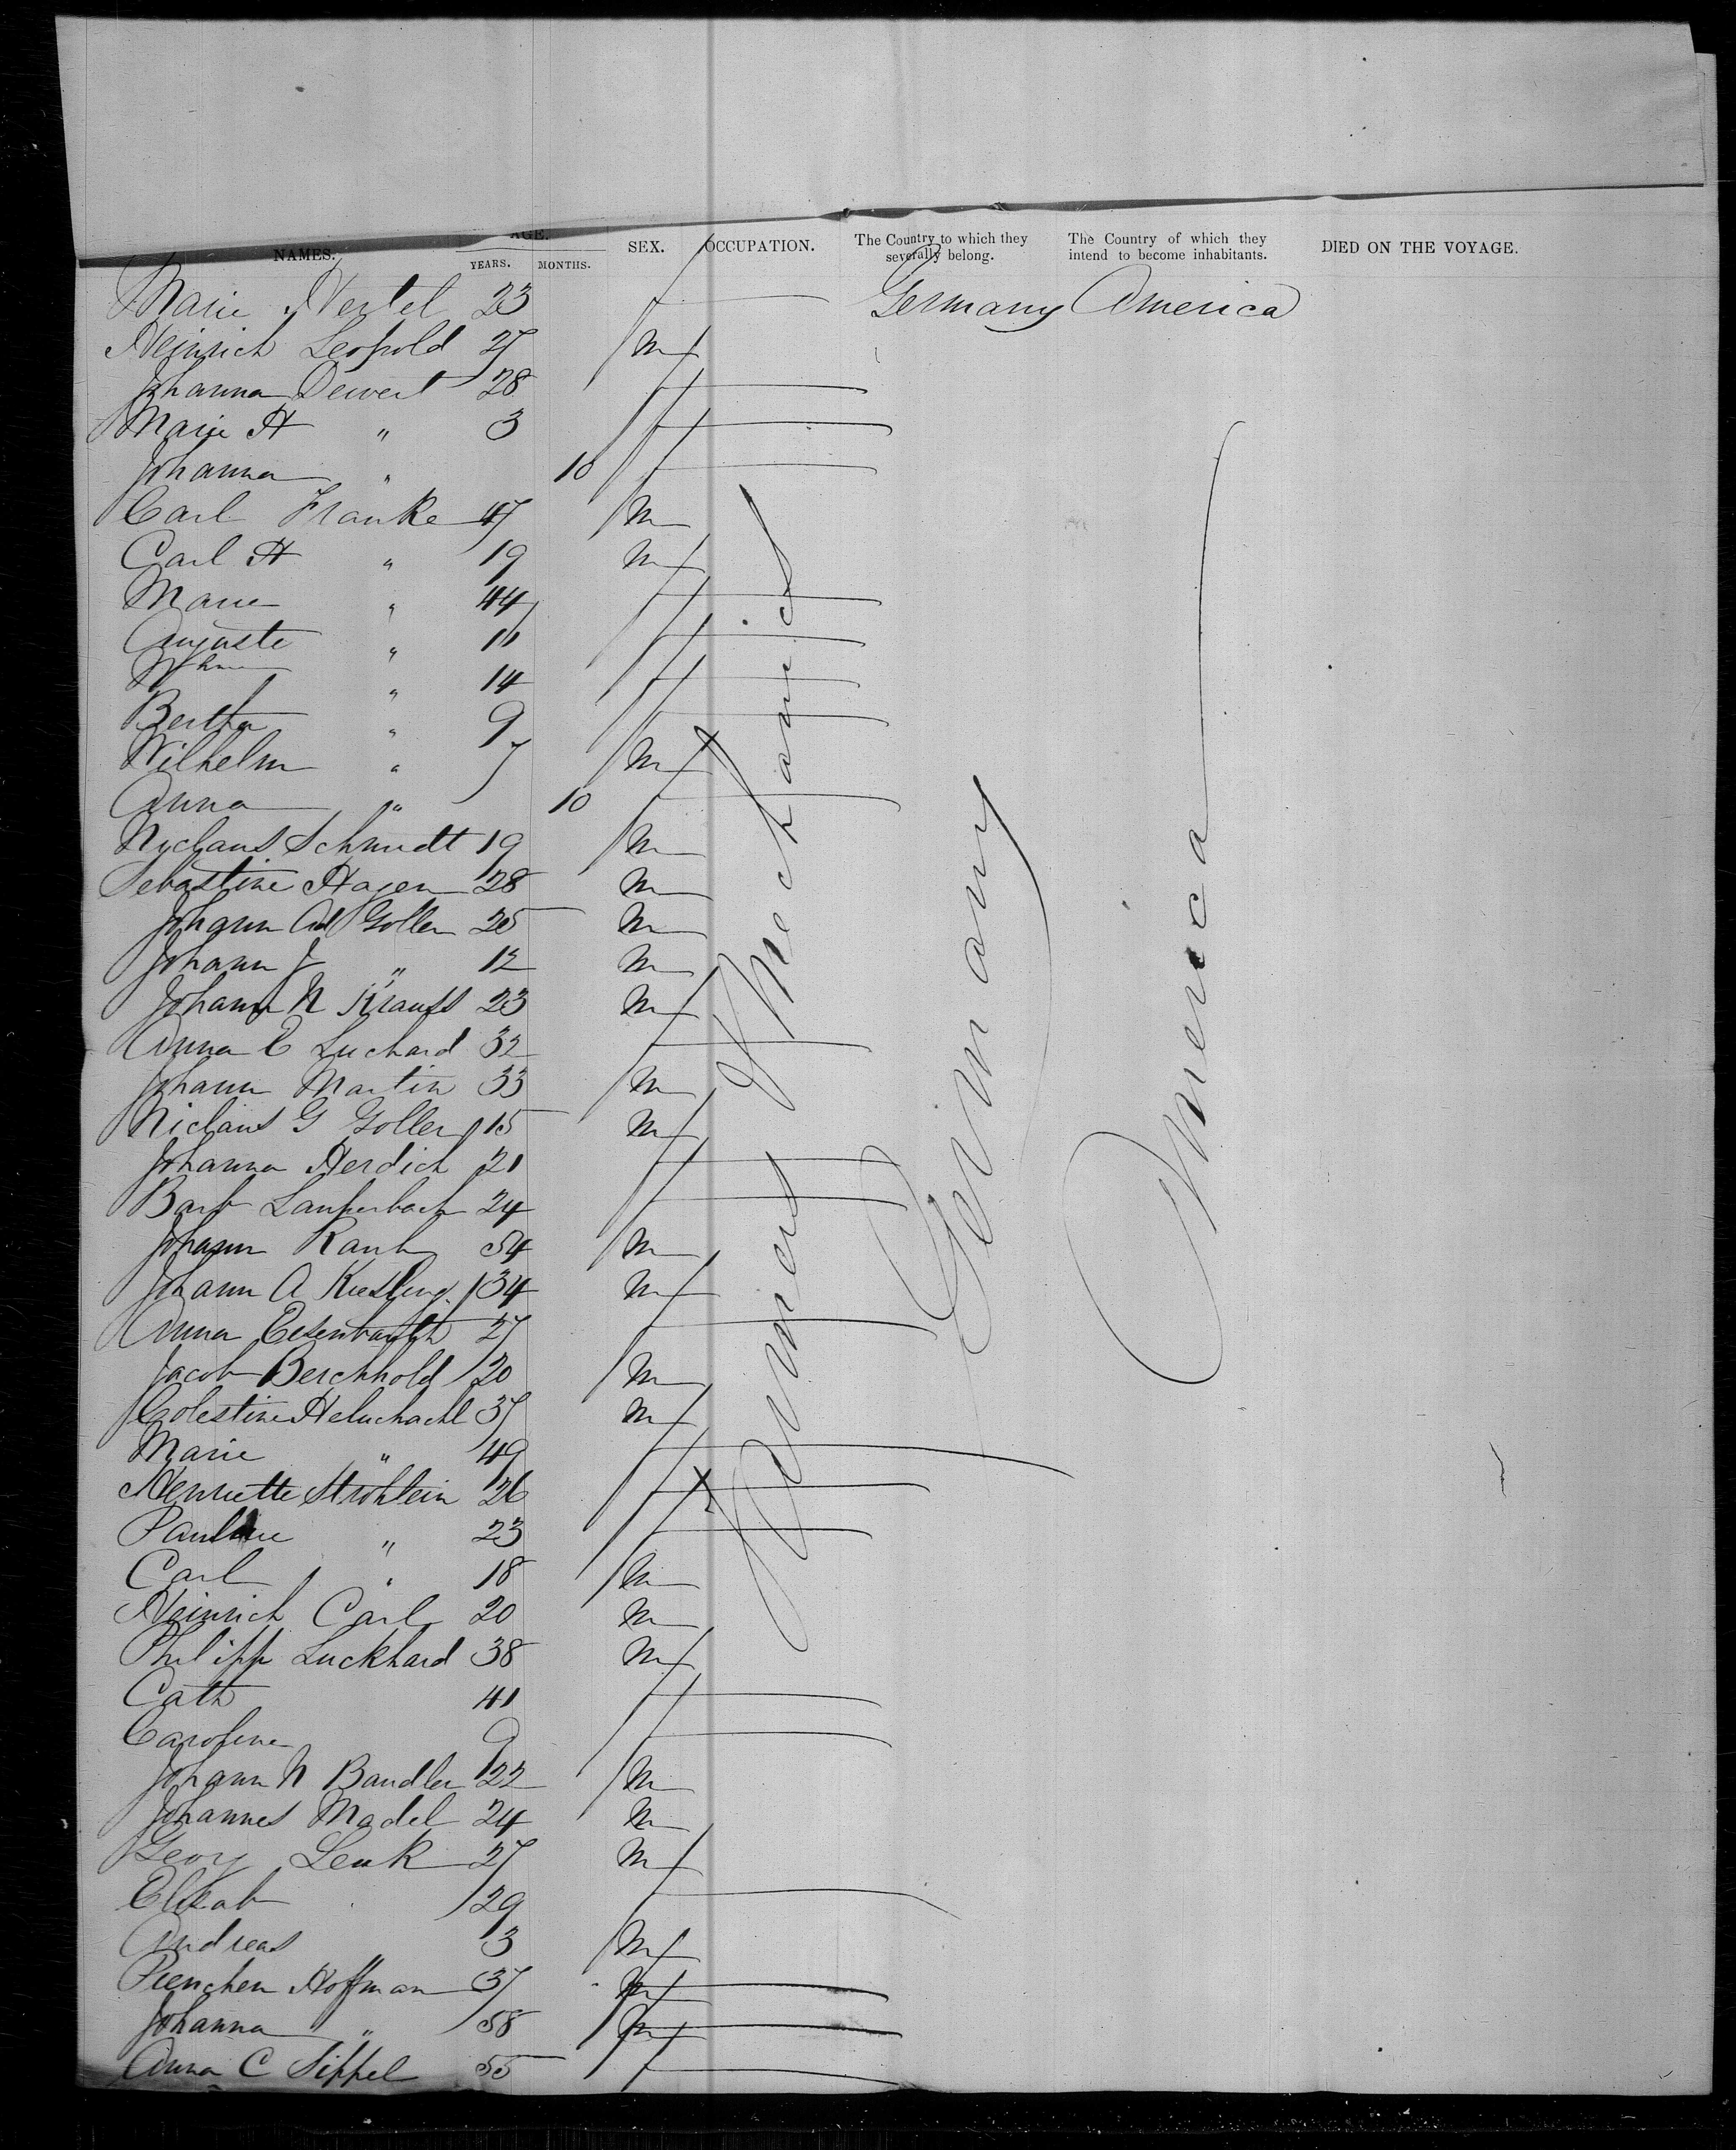 NAMES. AGE. YEARS. MONTHS. SEX. OCCUPATION. The Country to which they severally belong. The Country of which they intend to become inhabitants. DIED ON THE VOYAGE.
Marie Hertel 23 f Germany America
Heinrich Leopold 27 m
Johanna Dewert 28 f
Marie H " 3 f
Johanna " 10 f
Carl Franke 47 m
Carl H " 19 m
Marie " 44 f
Auguste " 11 f
" 14 f
Bertha " 9 f
Wilhelm " 7 m
Anna " 10 f
Nyclaus Schmidt 19 m
Sebastine Hagen 28 m
Johann Ad Goller 25 m
Johann J " 12 m
Johann N Krauss 23 m
Anna E Luchard 32 f
Johann Martin 33 m
Niclaus G Goller 15 m
Johanna Herdich 21 f
Barb Lauterbach 24 f
Johann Rank 54 m
Johann A Kiesling 34 m
Anna 27 f
Jacob Berchhold 20 m
Colestine 37 m
Marie " 49 f
Henriette Strohlein 26 f
Pauline " 23 f
Carl " 18 m
Heinrich Carl 20 m
Philipp Luckhard 38 m
Cath 41 f
Caroline 9 f
Johann N Bandler 22 m
Johannes Madel 24 m
Georg Leuk 27 m
Elisab 29 f
Andreas 3 m
Hoffman 37 f
Johanna " 58 f
Anna C Sippel 55 f
Farmers & Mechanics
Germany
America